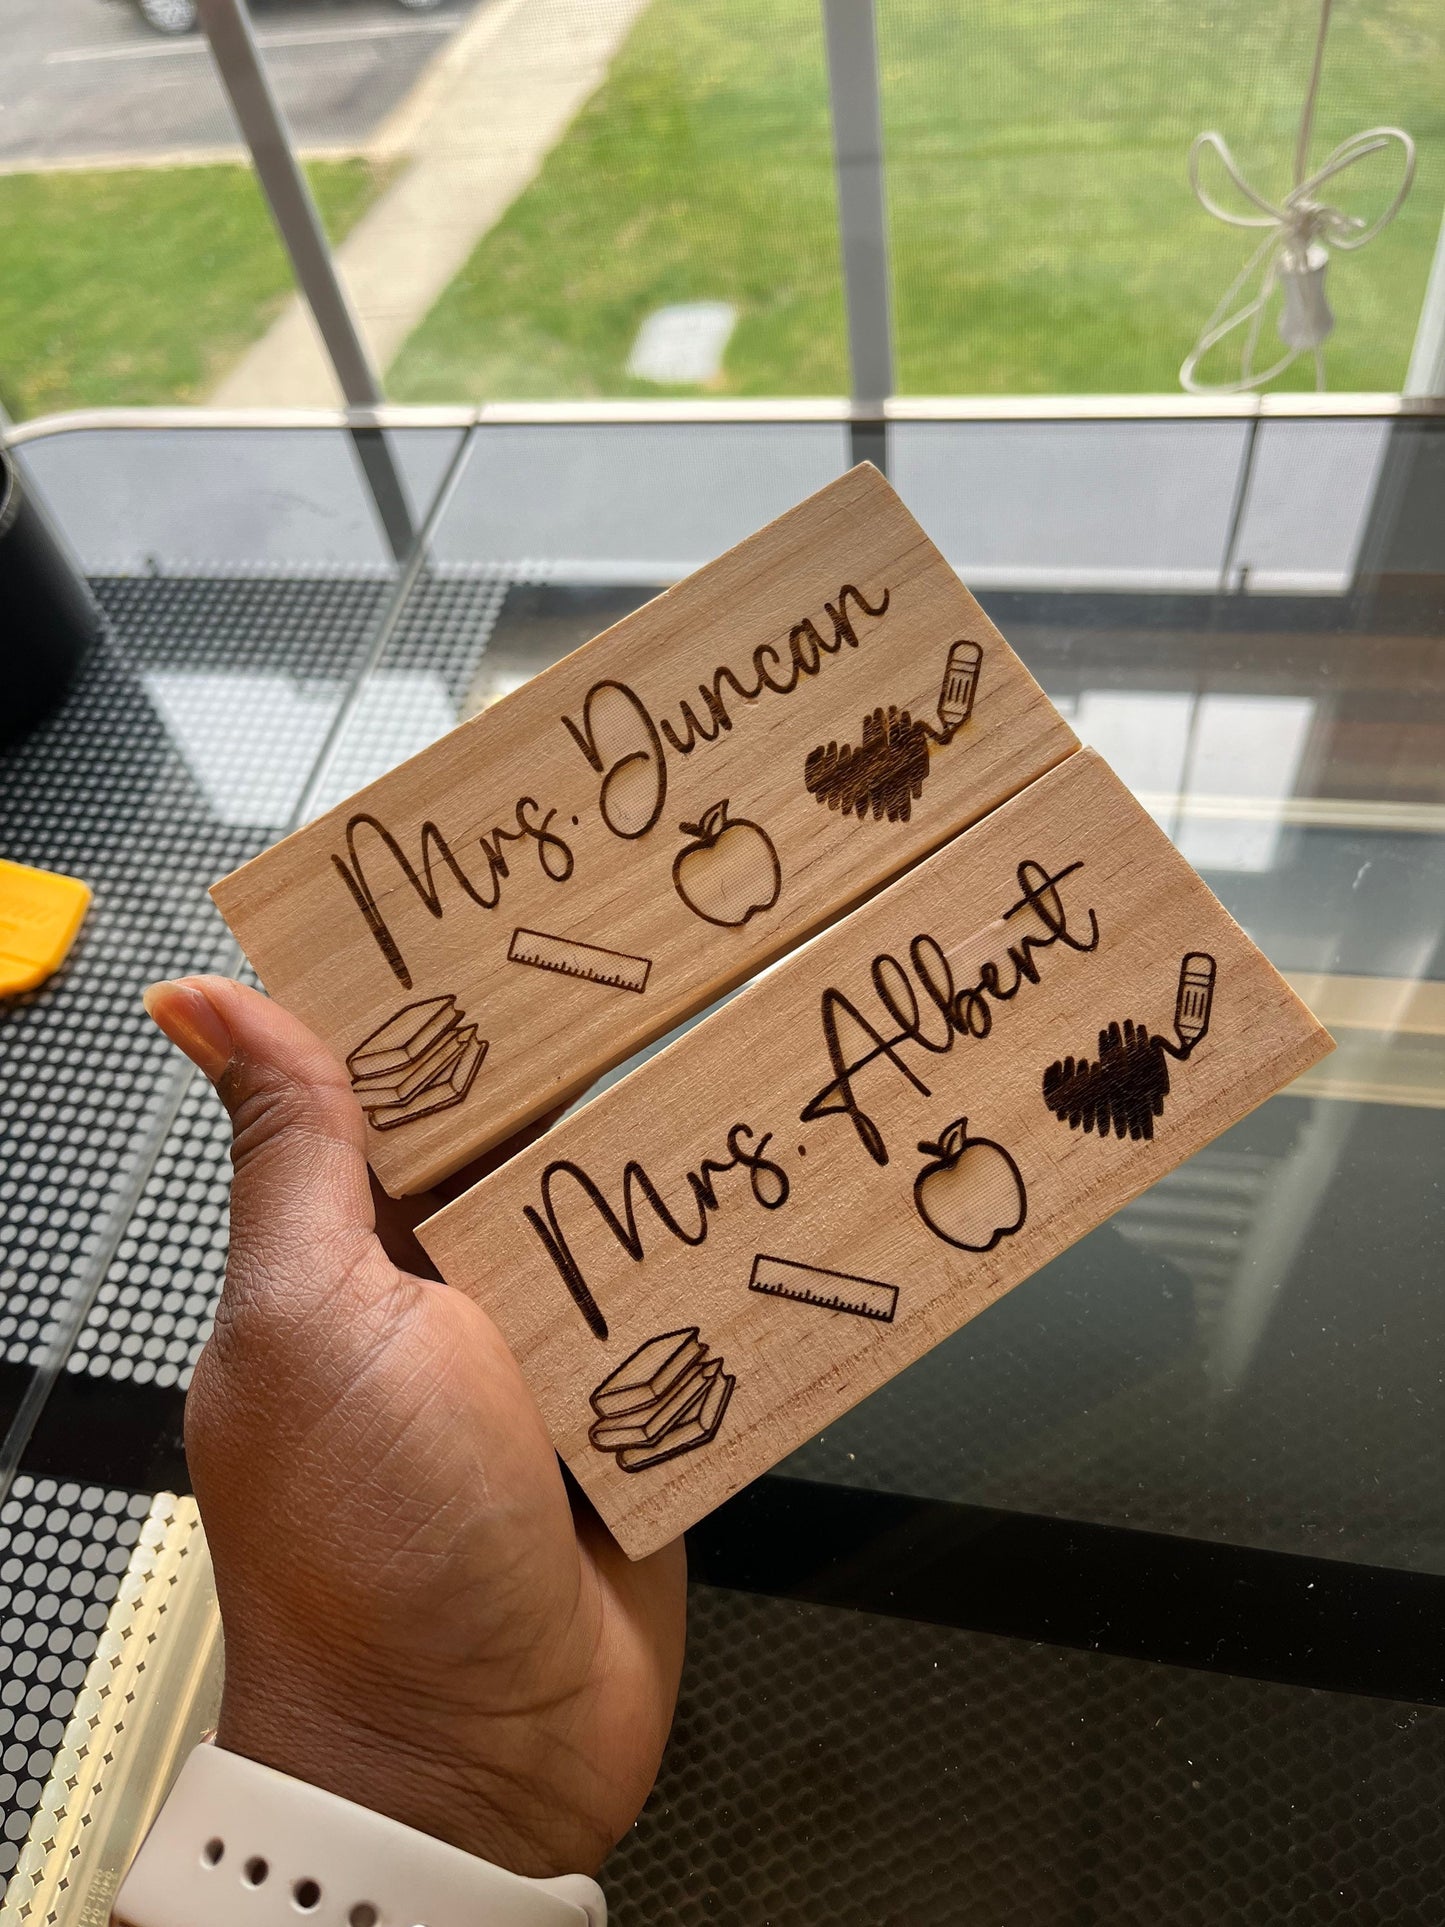 Mrs. Duncan
Mrs. Albert